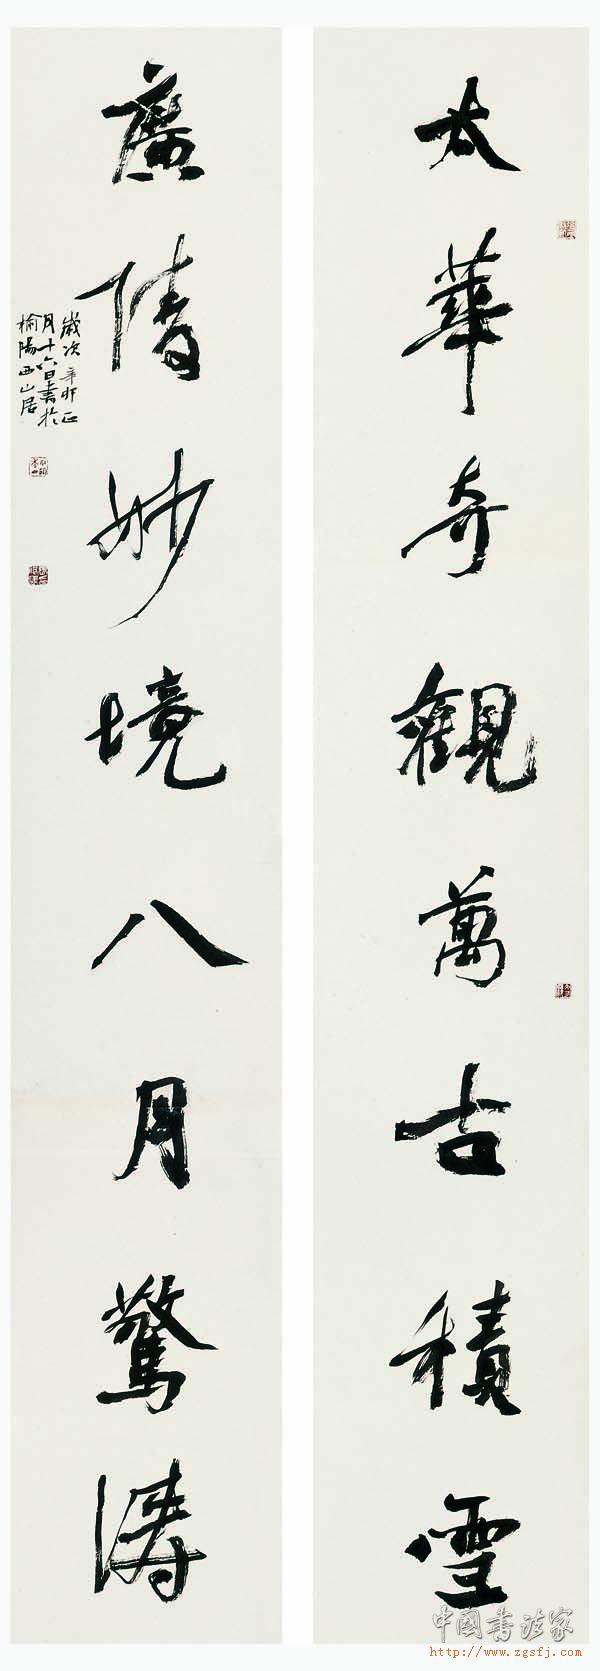 太華奇觀萬古積雪
廣陵妙境八月驚濤
歲次辛卯正
月十六日書於
榆陽西山居
中国书法家
http://www.zgsfj.com